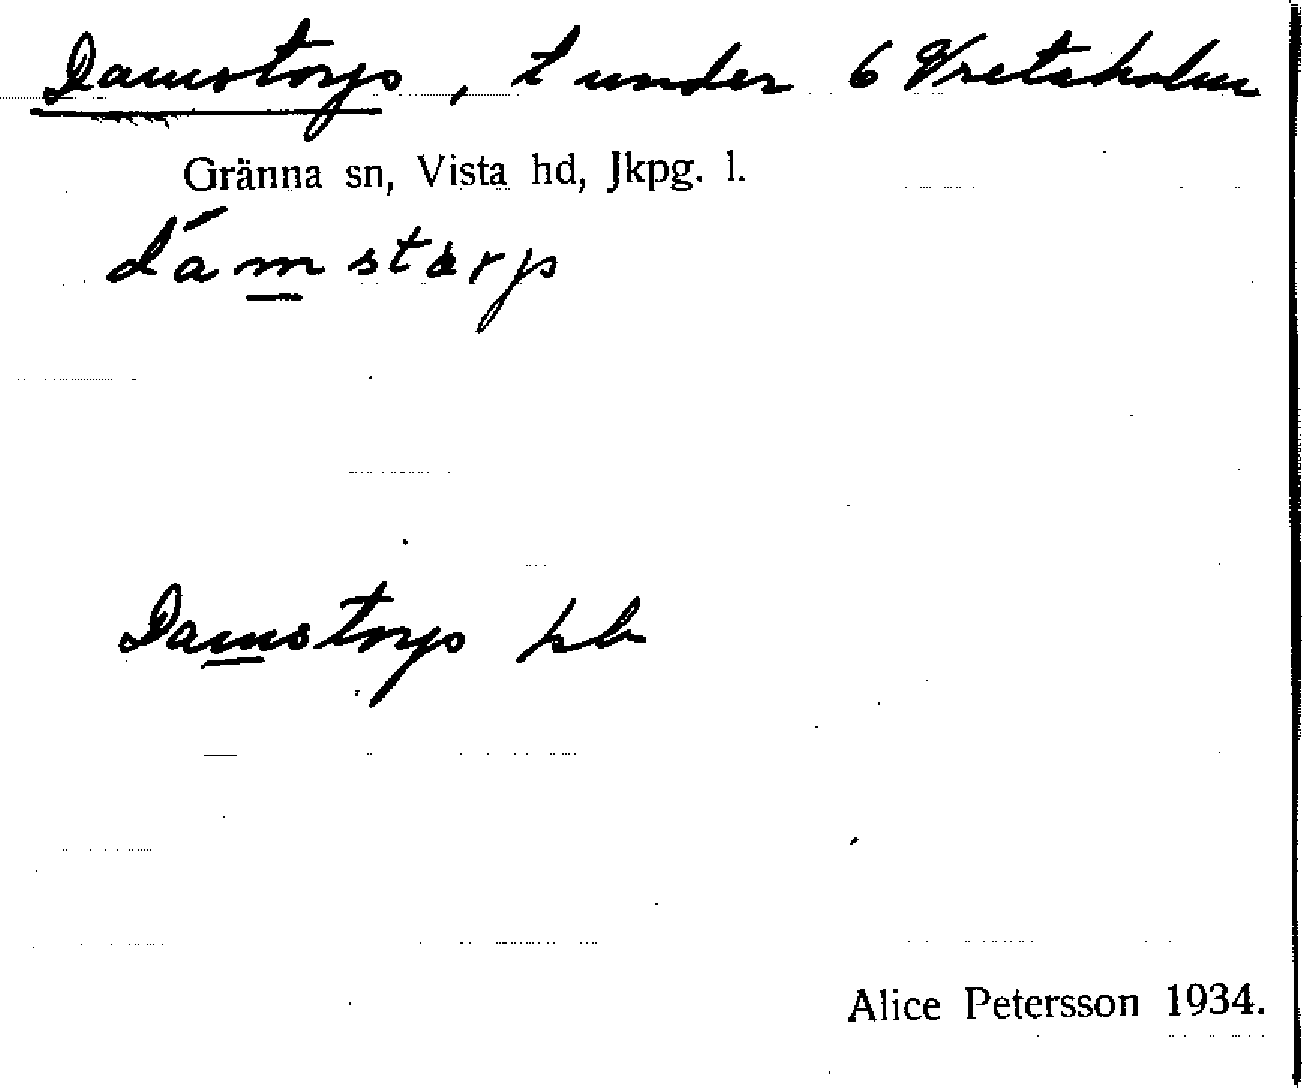 Damstorp, t under 6 Vretaholm
Gränna sn, Vista hd, Jkpg. l.
dámstårp
Damstorp hb
Alice Petersson 1934.